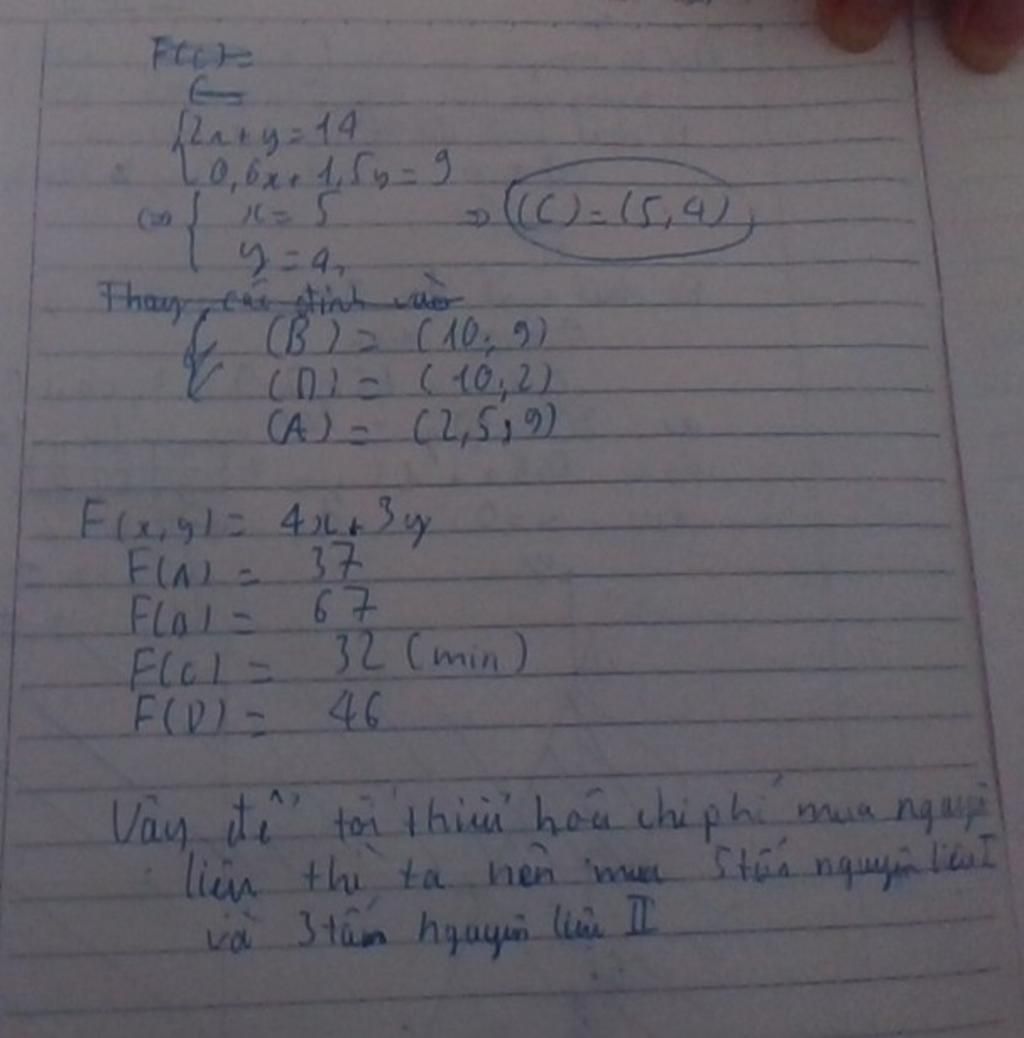 F(C)=
{2x+y=14
0,6x+1,5y=9
<=> { x=5 => (C)=(5,4)
y=4,
Thay các đỉnh vào
(B) = (10; 9)
(D) = (10,2)
(A) = (2,5;9)
F(x,y) = 4x+3y
F(A) = 37
F(B) = 67
F(C) = 32 (min)
F(D) = 46
Vậy để tối thiểu hoá chi phí mua nguyên
liệu thì ta nên mua 5 tấn nguyên liệu I
và 3 tấn nguyên liệu II